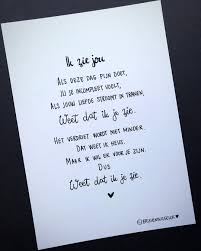 Ik zie jou
Als deze dag pijn doet,
jij je incompleet voelt,
als jouw liefde stroomt in tranen,
Weet dat ik je zie.
Het verdriet wordt niet minder.
Dat weet ik heus.
Maar ik wil er voor je zijn.
Dus
Weet dat ik je zie.